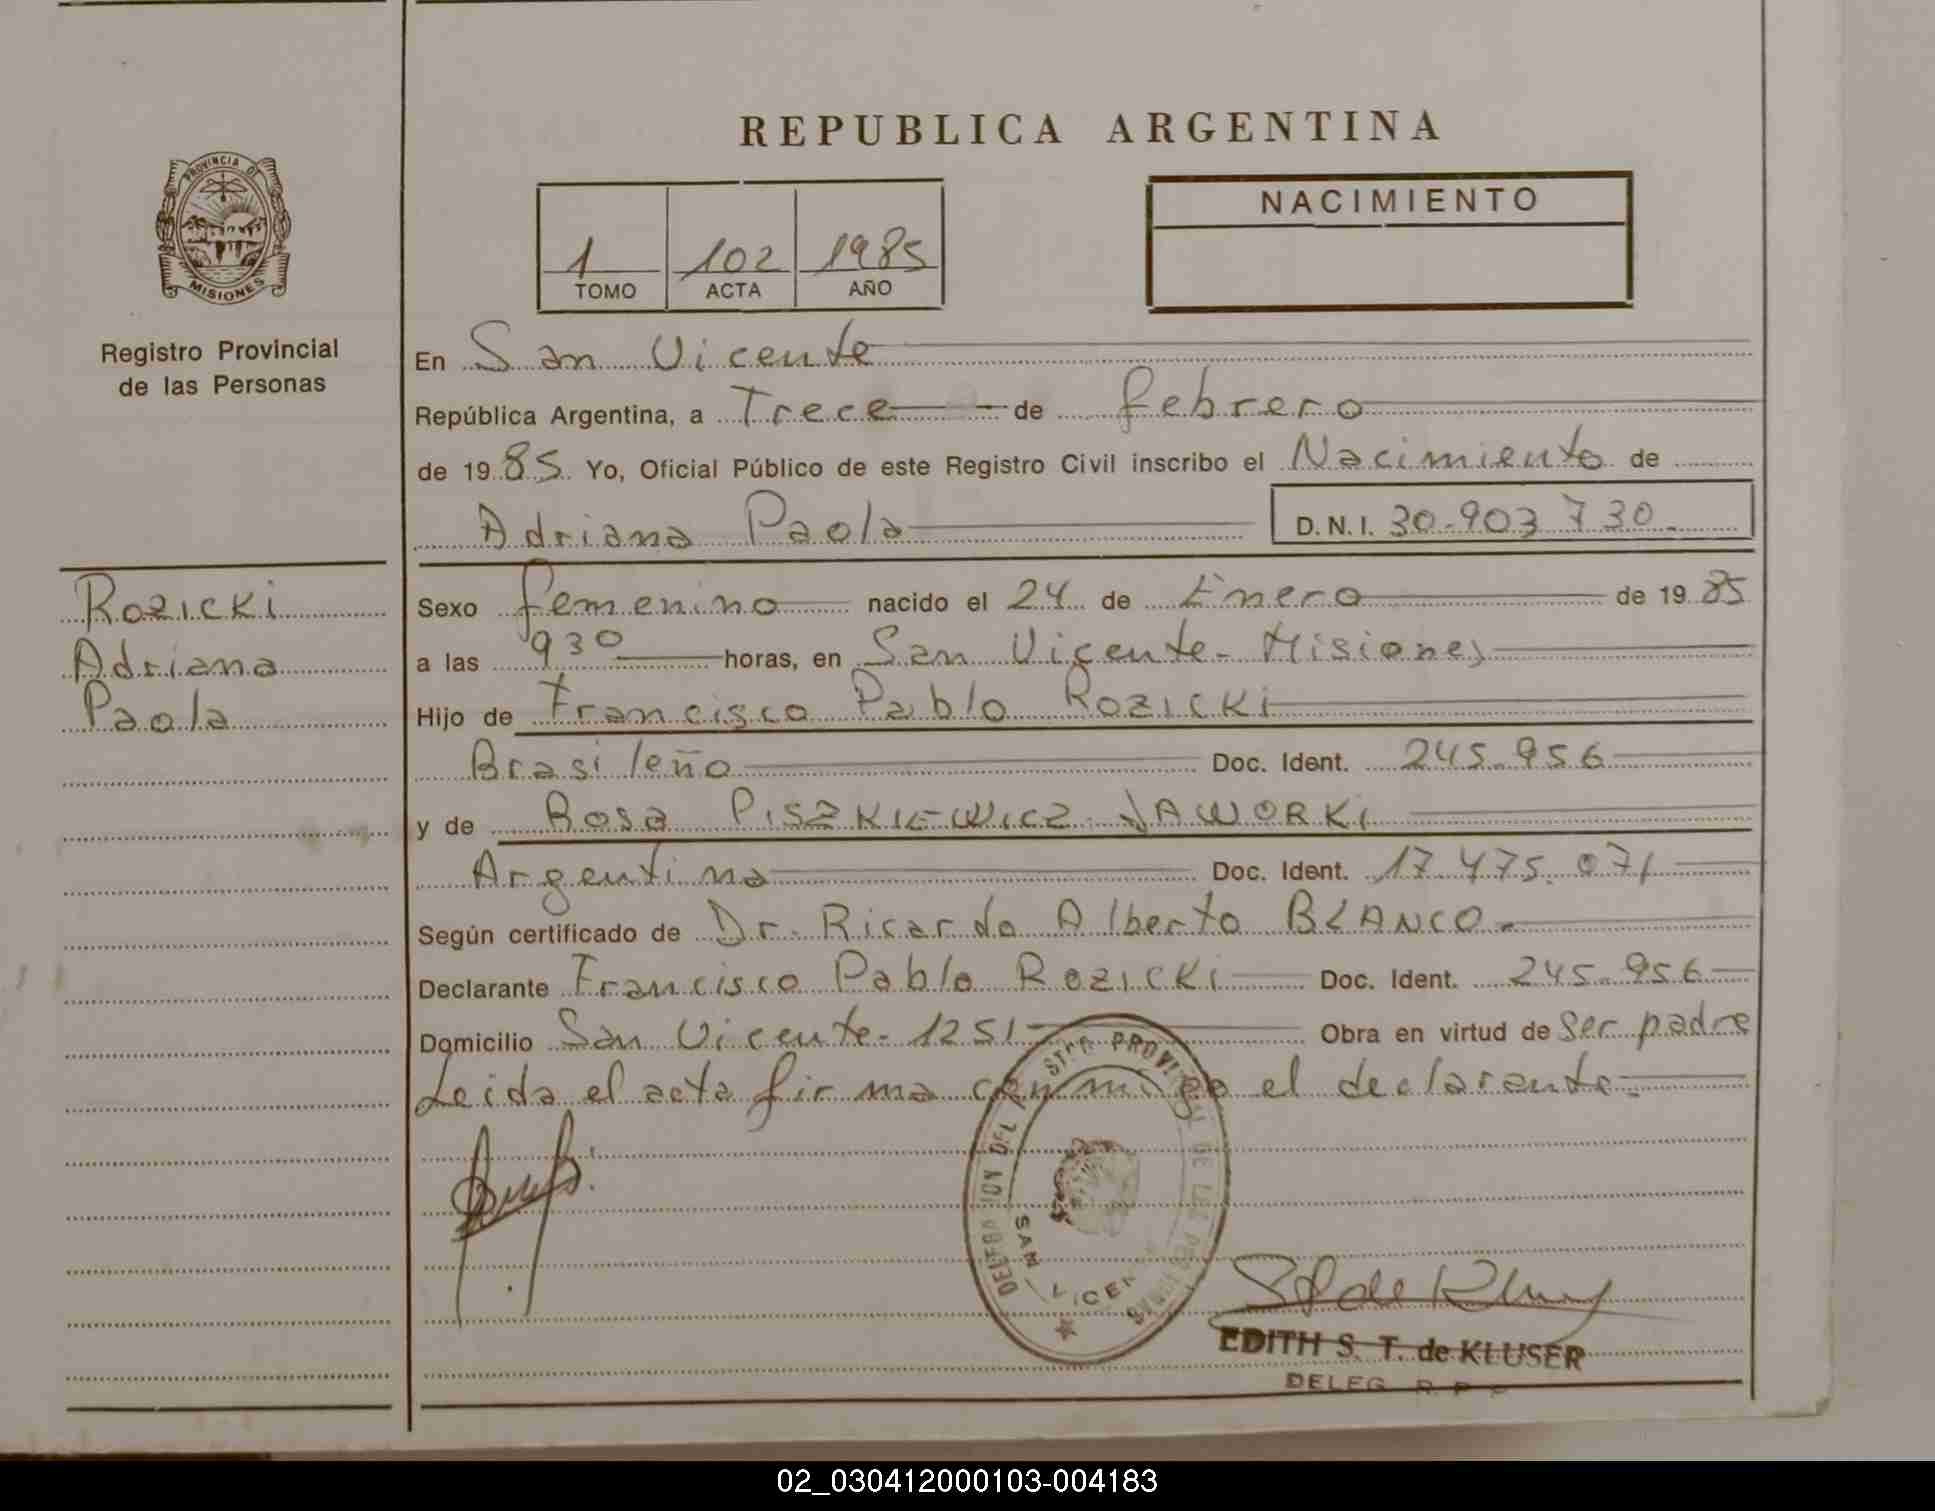 REPUBLICA ARGENTINA
PROVINCIA DE
MISIONES
Registro Provincial
de las Personas
1 102 1985
TOMO ACTA AÑO
NACIMIENTO
En San Vicente
República Argentina, a Trece de febrero
de 1985 Yo, Oficial Público de este Registro Civil inscribo el Nacimiento de
Adriana Paola D.N.I. 30.903 730
Rozicki
Adriana
Paola
Sexo femenino nacido el 24 de Enero de 1985
a las 930 horas, en San Vicente - Misiones
Hijo de Francisco Pablo Rozicki
Brasileño Doc. Ident. 245.956
y de Rosa PISZKIEWICZ JAWORKI
Argentina Doc. Ident. 17.475.071
Según certificado de Dr. Ricardo Alberto BLANCO.
Declarante Francisco Pablo Rozicki Doc. Ident. 245.956
Domicilio San Vicente - 1251 Obra en virtud de ser padre
Leida el acta firma conmigo el declarante.
SAN VICENTE
EDITH S. T. de KLUSER
DELEG
02_030412000103-004183